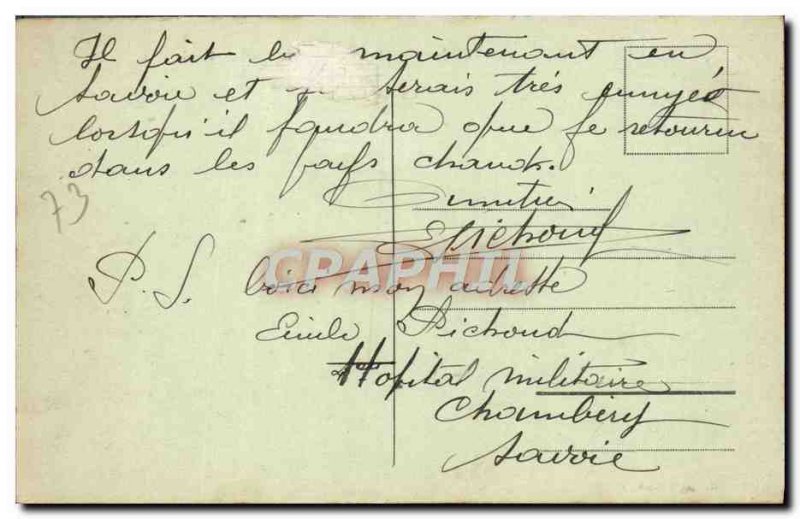 Il fait maintenant en
Savoie et serais très ennuyé
lorsqu'il faudra que je retourne
dans les pays chauds.
EPichoud
P.S. Voici mon adresse
Emile Pichoud
Hopital militaire
Chambéry
Savoie
73
CPAPHIL